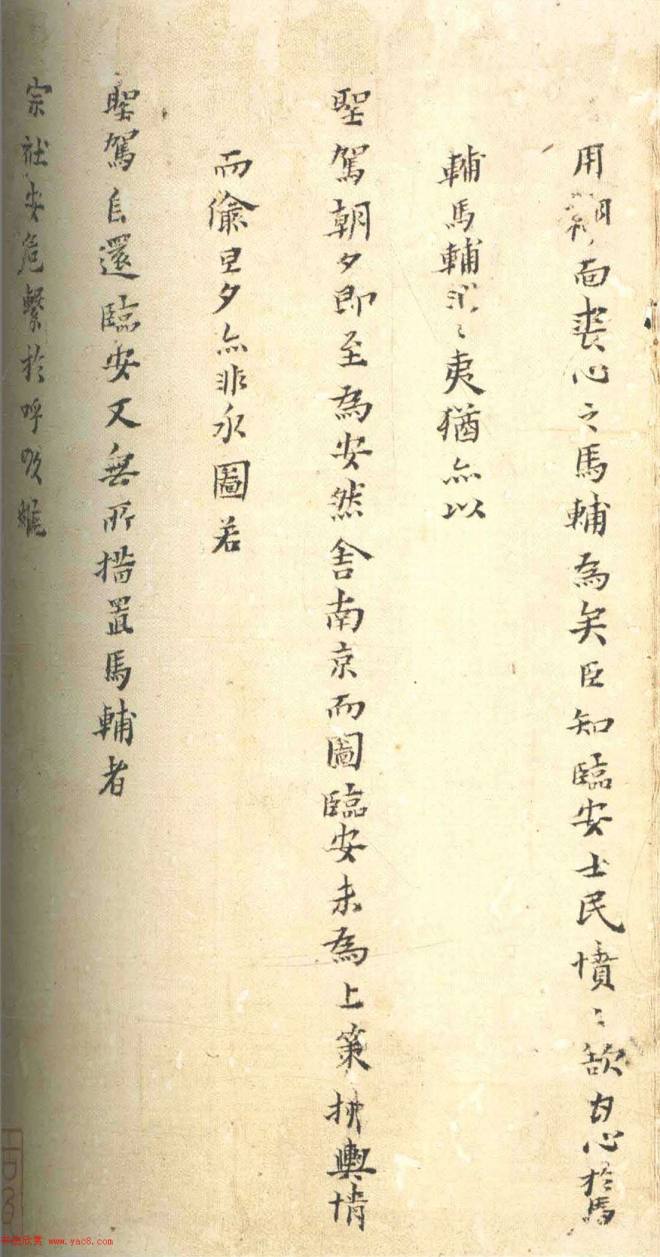 用緡靣喪心之馬輔為矣臣知臨安士民憤〻欲甘心於馬
輔馬輔〻夷猶亦以
聖駕朝夕即至為安然舍南京而圖臨安未為上策拂輿情
而偸旦夕亦非永圖若
聖駕自還臨安又無所措置馬輔者
宗社安危繫於呼吸雖
www.yac8.com